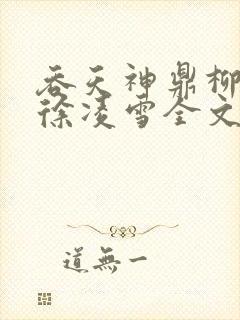 吞天神鼎柳
徐凌雪全文
道無一